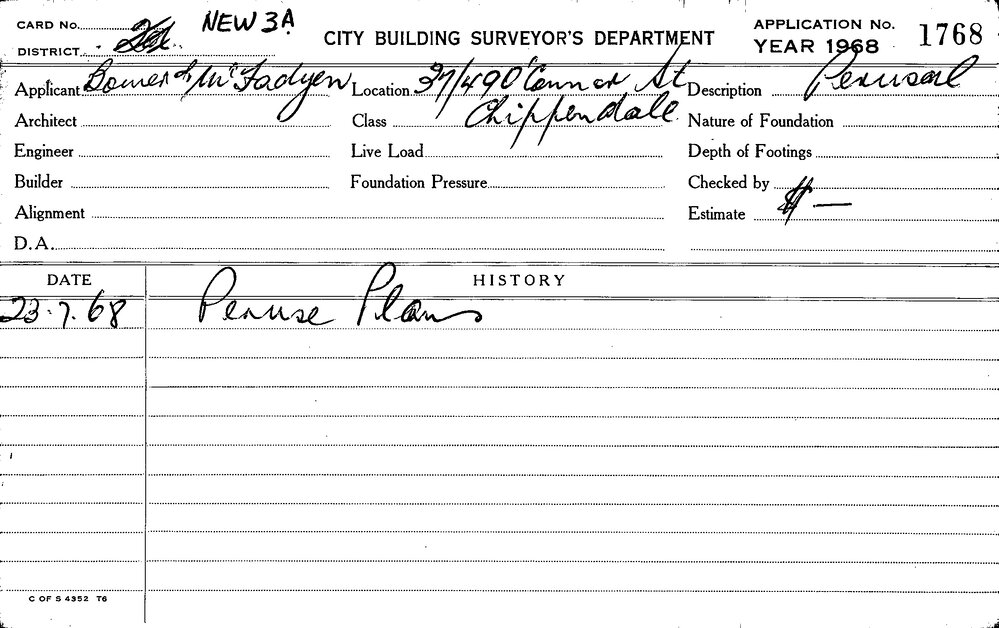 CARD No. NEW 3A
CITY BUILDING SURVEYOR'S DEPARTMENT
APPLICATION No. 1768
DISTRICT
YEAR 1968
Applicant Bower & McFadyen Location 37/49 O'Connor St Description Perusal
Architect Class Chippendale Nature of Foundation
Engineer Live Load Depth of Footings
Builder Foundation Pressure Checked by
Alignment Estimate $ —
D.A.
DATE HISTORY
23.7.68 Peruse Plans
C OF S 4352 T6